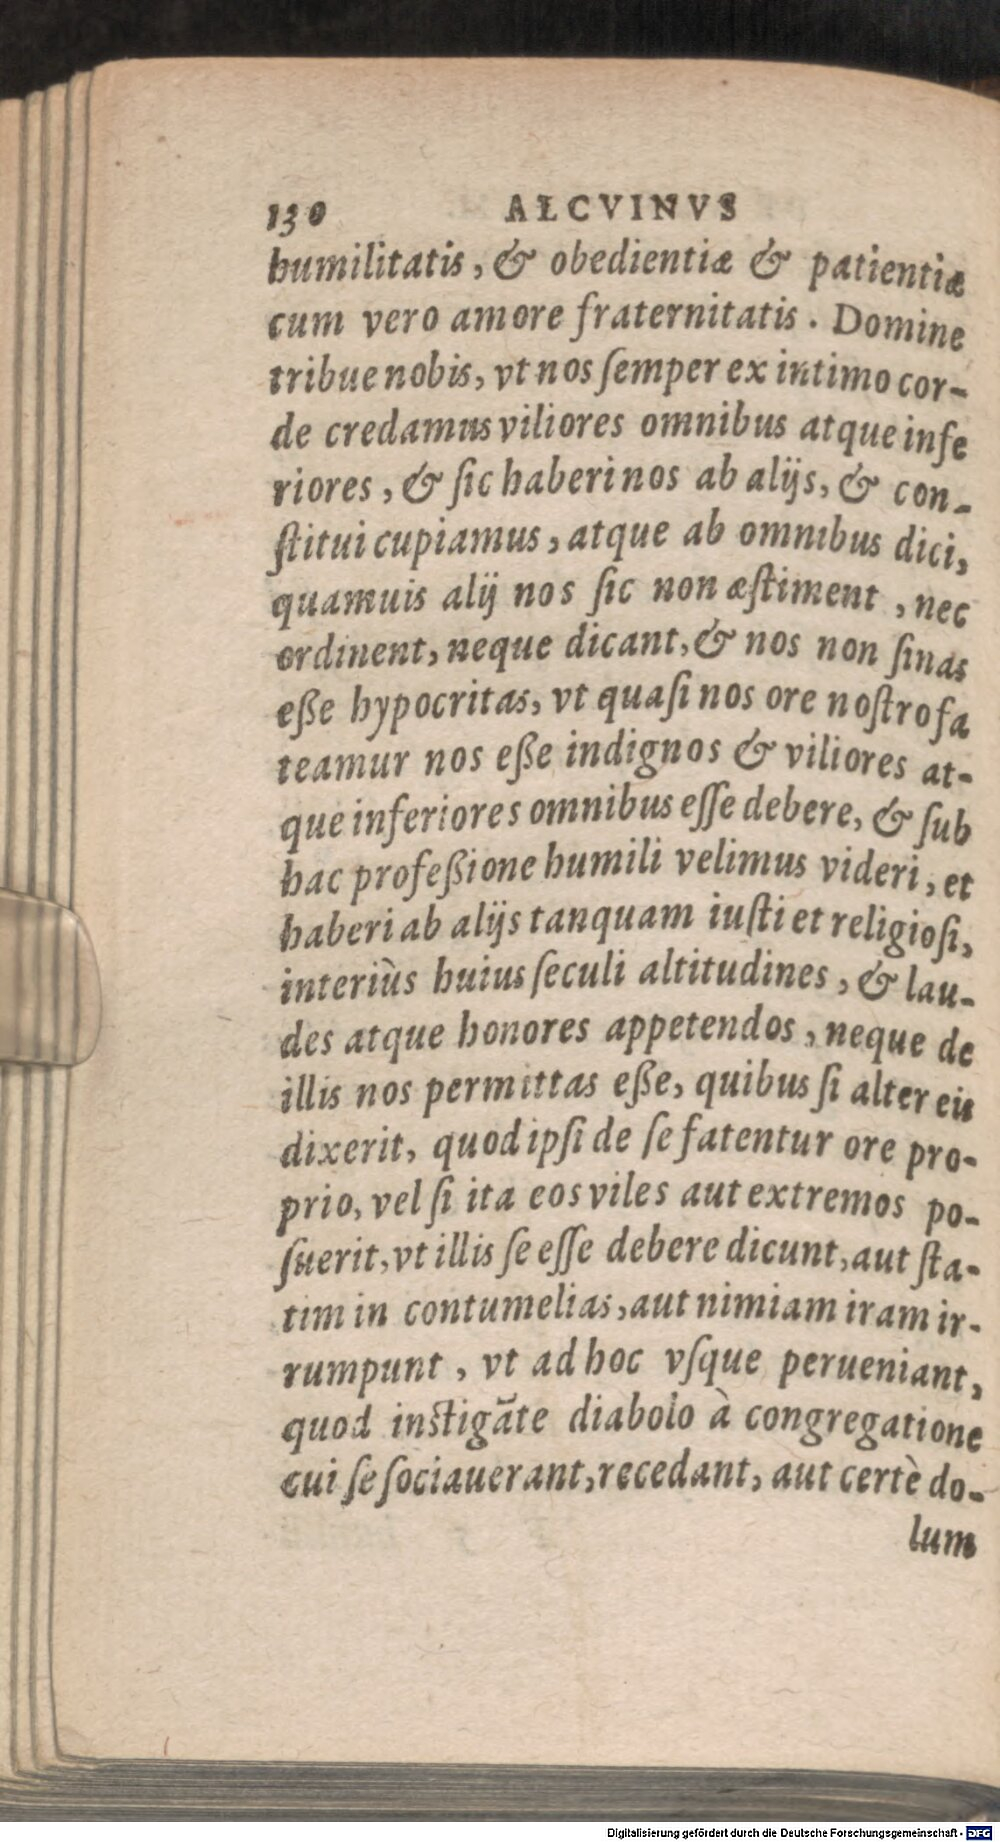 130 ALCVINVS
humilitatis, & obedientiæ & patientiæ
cum vero amore fraternitatis. Domine
tribue nobis, vt nos ſemper ex intimo cor-
de credamus viliores omnibus atque infe
riores, & ſic haberi nos ab alijs, & con-
ſtitui cupiamus, atque ab omnibus dici,
quamuis alij nos ſic non æſtiment, nec
ordinent, neque dicant, & nos non ſinas
eße hypocritas, vt quaſi nos ore noſtro fa
teamur nos eße indignos & viliores at-
que inferiores omnibus eſſe debere, & ſub
hac profeßione humili velimus videri, et
haberi ab alijs tanquam iuſti et religioſi,
interiùs huius ſeculi altitudines, & lau-
des atque honores appetendos, neque de
illis nos permittas eße, quibus ſi alter eis
dixerit, quod ipſi de ſe fatentur ore pro-
prio, vel ſi ita eos viles aut extremos po-
ſuerit, vt illis ſe eſſe debere dicunt, aut ſta-
tim in contumelias, aut nimiam iram ir-
rumpunt, vt ad hoc vſque perueniant,
quod inſtigāte diabolo à congregatione
cui ſe ſociauerant, recedant, aut certè do-
lum
Digitalisierung gefördert durch die Deutsche Forschungsgemeinschaft - DFG